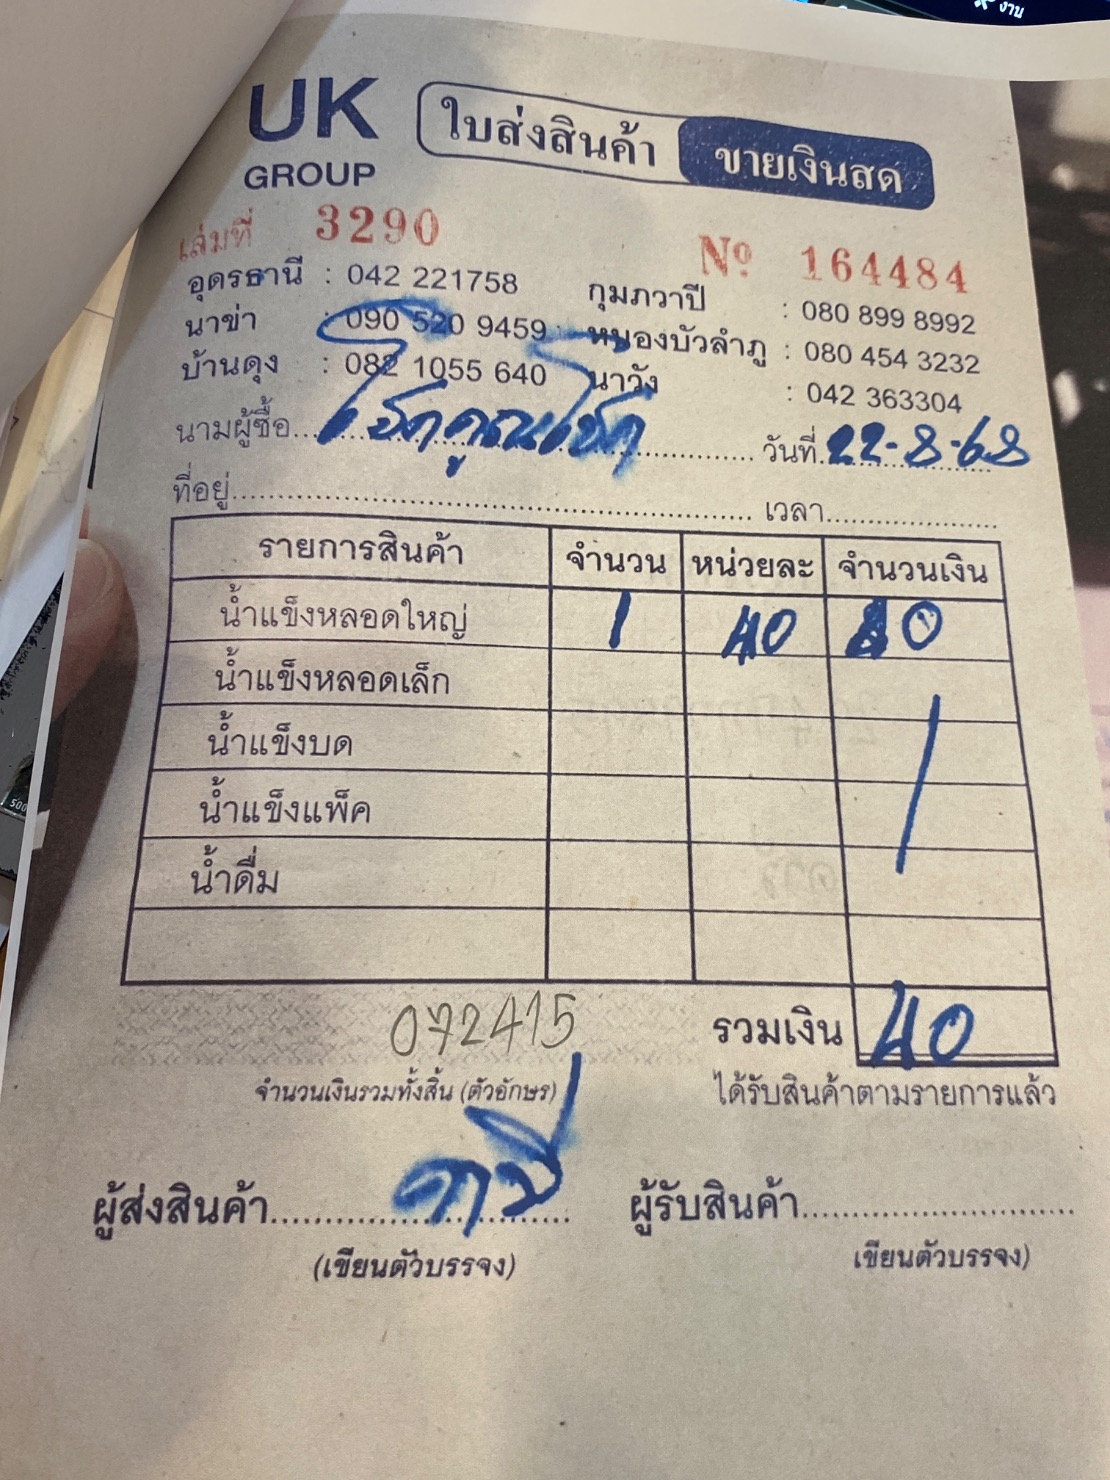 งาน
UK
GROUP
ใบส่งสินค้า ขายเงินสด
เล่มที่ 3290 Nº 164484
อุดรธานี : 042 221758 กุมภวาปี : 080 899 8992
นาข่า : 090 520 9459 หนองบัวลำภู : 080 454 3232
บ้านดุง : 082 1055 640 นาวัง : 042 363304
นามผู้ซื้อ โชคคูณโชค วันที่ 22-8-68
ที่อยู่ เวลา
รายการสินค้า จำนวน หน่วยละ จำนวนเงิน
น้ำแข็งหลอดใหญ่ 1 40 40
น้ำแข็งหลอดเล็ก
น้ำแข็งบด
น้ำแข็งแพ็ค
น้ำดื่ม
072415 รวมเงิน 40
จำนวนเงินรวมทั้งสิ้น (ตัวอักษร) ได้รับสินค้าตามรายการแล้ว
ผู้ส่งสินค้า ผู้รับสินค้า
(เขียนตัวบรรจง) เขียนตัวบรรจง)